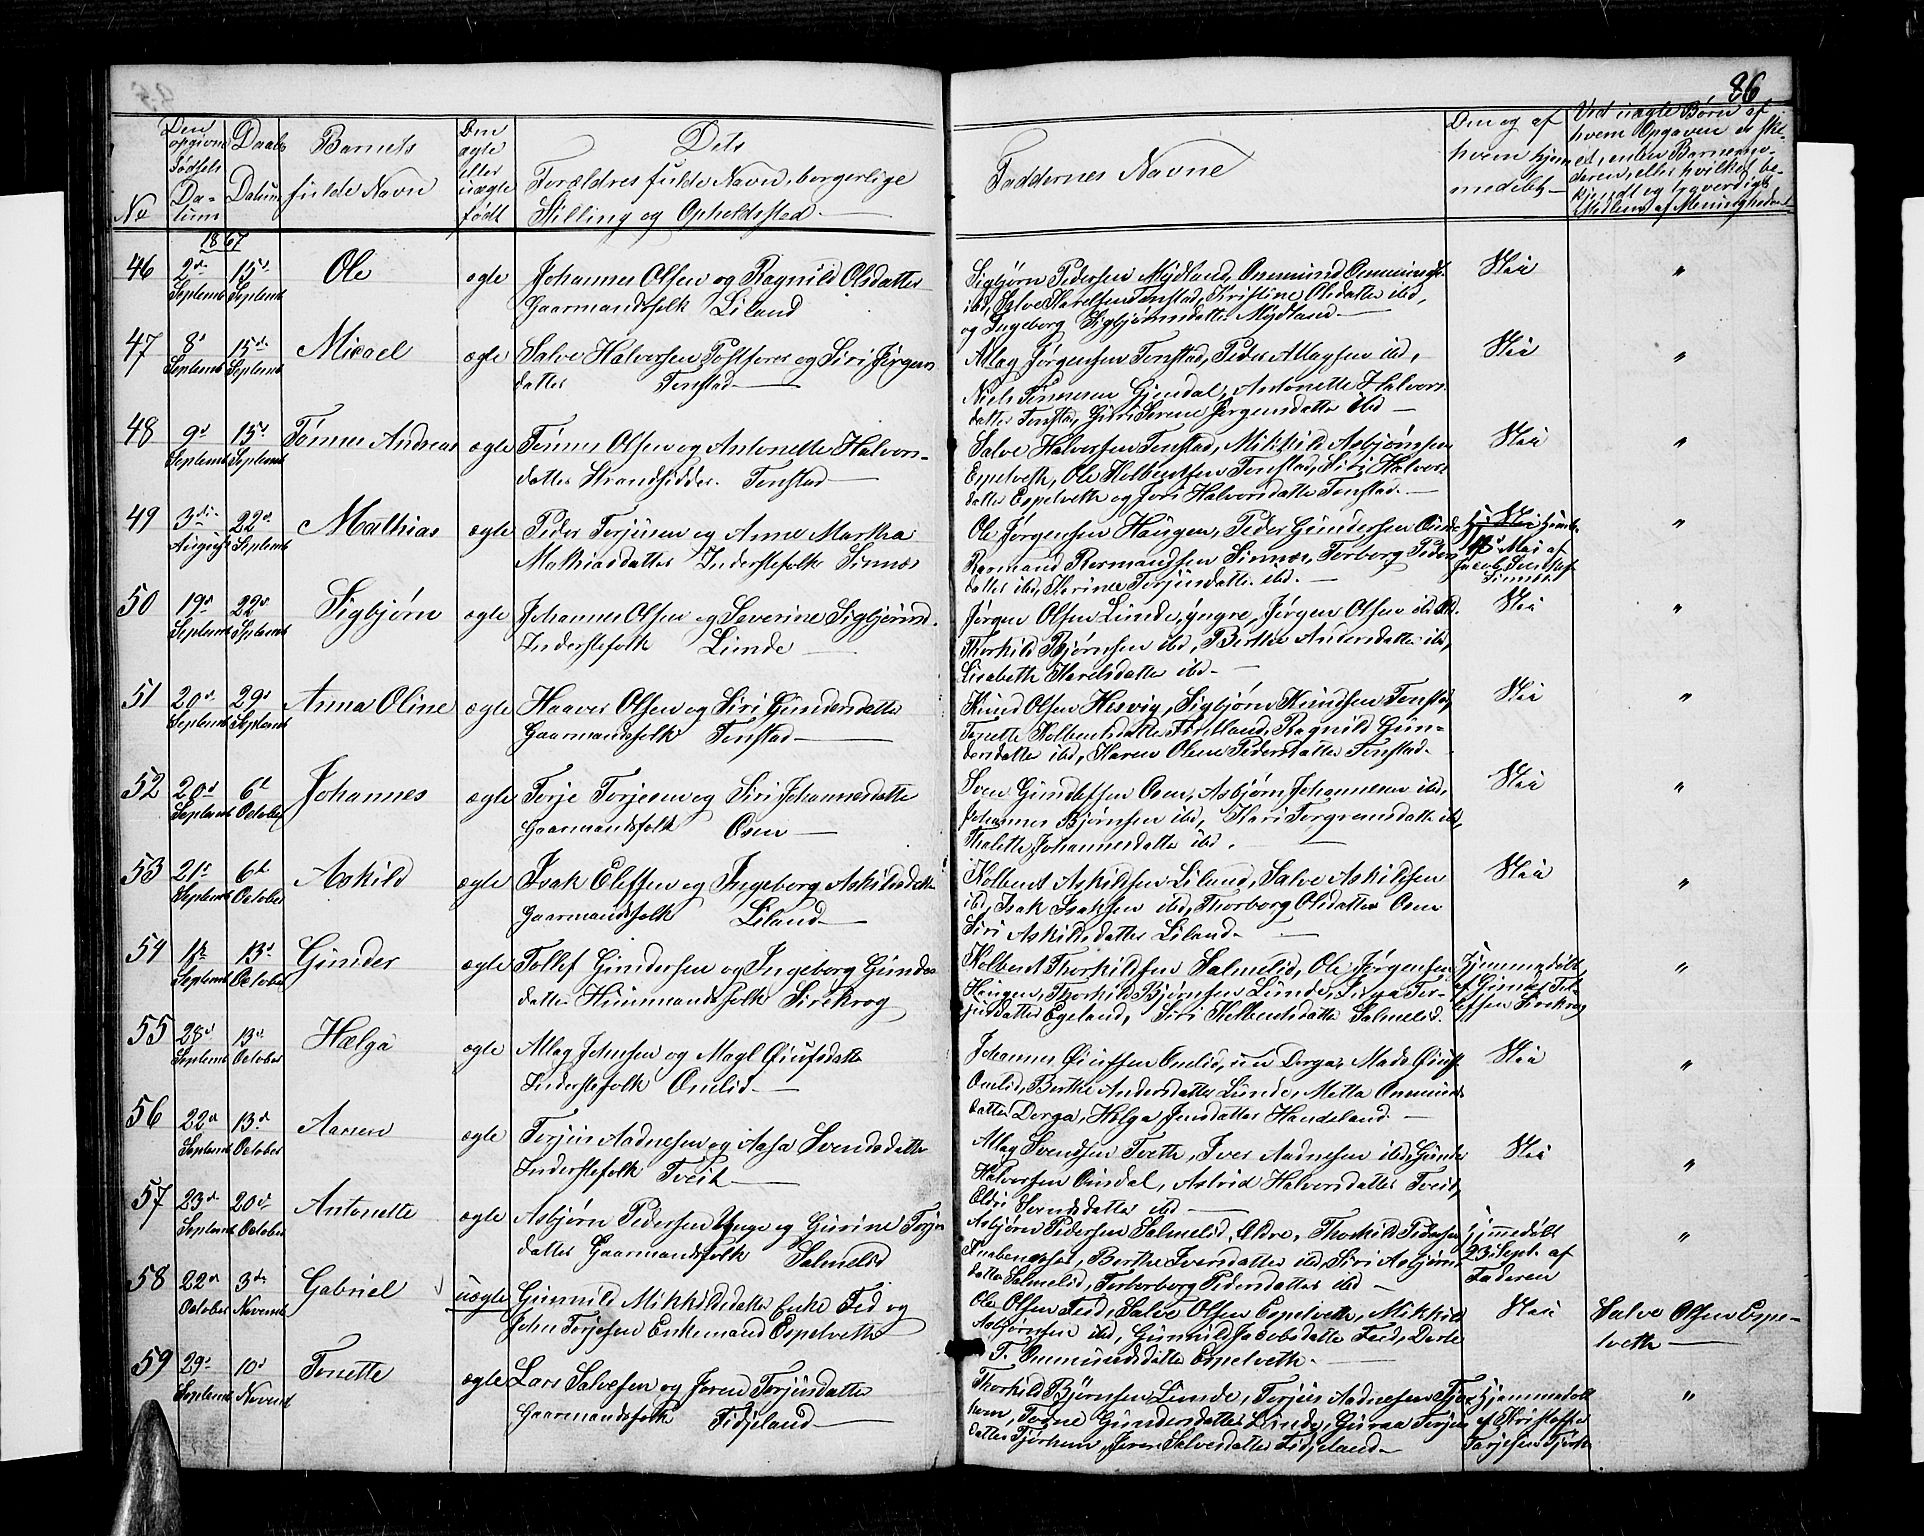 86
No
Den opgivne Fødsels Datum
Daabs Datum
Barnets fulde Navn
Om ægte eller uægte født
Dets Forældres fulde Navn, borgerlige Stilling og Opholdssted.
Faddernes Navne
Om og af hvem hjemmedøbt
Ved uægte Børn af hvem Opgaven er skeet, enten Barnemoderen, eller hvilket bekjendt og troværdigt Medlem af Menigheden
1867
46 2d Septemb 15d Septemb Ole ægte Johannes Olsen og Ragnild Olsdatter
Gaarmandsfolk Liland
Sigbjørn Pedersen Mydland, Ommund Ommunds.
ibd, Salve Tonstad, Kristine Olsdatter ibd,
og Ingeborg Sigbjørnsdatter Mydland
Nei "
47 8d Septemb 15d Septemb Micael ægte Salve Halvorsen Postfører og Siri Jørgens
datter Tonstad
Atlag Jørgensen Tonstad, Peder Atlagsen ibd,
Niels Tønnesen Gjendal, Antonette Halvors
datter Tonstad, Serene Jørgensdatter ibd
Nei "
48 9d Septemb 15d Septemb Tønnes Andreas ægte Tønnes Olsen og Antonette Halvors-
datter Strandsidder Tonstad
Salve Halvorsen Tonstad, Mikkild Asbjørnsen
Espelveth, Ole Kolbentsen Tonstad, Siri Halvors
datter Espelveth og Jori Halvorsdatter Tonstad.
Nei "
49 3die August 22d Septemb Mathias ægte Peder Torjusen og Anne Martha
Mathiasdatter Inderstefolk Sinnes
Ole Jørgensen Haugen, Peder Gundersen
Reumand Reumandsen Sinnes, Torborg Peders
datter ibd, Torjusdatter ibd.
Mai af
Jacob
Sinnes "
50 19d Septemb 22d Septemb Sigbjørn ægte Johannes Olsen og Severine Sigbjørnsd.
Inderstefolk Lunde
Jørgen Olsen Lunde, yngre, Jørgen Olsen ibd
Thorkild Bjørnsen ibd, Berthe Andersdatter ibd,
Lisabeth ibd
Nei "
51 20d Septemb 29d Septemb Anna Oline ægte Haaver Olsen og Siri Gundersdatter
Gaarmandsfolk Tonstad
Knud Olsen Hesvig, Sigbjørn Knudsen Tonstad,
Tonette Kolbentsdatter Ragnild Gun-
dersdatter ibd, Karen Olene Pedersdatter Tonstad.
Nei "
52 20d Septemb 6te October Johannes ægte Torje Torjesen og Siri Johannesdatter
Gaarmandsfolk Osen
Sven Gundersen Osen, Asbjørn Johannesen ibd,
Johannes Bjørnsen ibd, Kari Torgrimsdatter ibd,
Thalette Johannesdatter ibd.
Nei "
53 21d Septemb 6te October Askild ægte Isak Eleffsen og Ingeborg Askildsdatter
Gaarmandsfolk Liland
Kolbent Askildsen Liland, Salve Askildsen
ibd, Isak Isaksen ibd, Thorborg Olsdatter Osen
Siri Askildsdatter Liland
Nei "
54 Septemb 13d October Gunder ægte Tollef Gundersen og Ingeborg Gunders
datter Huusmandsfolk Sirekrog
Kolbent Thorkildsen Salmelid, Ole Jørgensen
Haugen, Thorkild Bjørnsen Lunde, Tor-
jusdatter Egeland, Siri Kolbentsdatter Salmelid.
Hjemmedøbt
af Gunder Tol-
lefsen Sirekrog "
55 28d Septemb 13d October Hælga ægte Atlag Johnsen og Magl datter
Inderstefolk Omlid
Johannes Omlid, Dorga, Mads
Omlid, Berthe Andersdatter Lunde, Metta Ommunds
datter Dorga, Helga Jensdatter Haudeland.
Nei "
56 22d Septemb 13d October Aanen ægte Torjus Aadnesen og Aasa Svendsdatter
Inderstefolk Tveit
Atlag Svendsen Tveth, Iver Aadnesen ibd, Gunder
Halvorsen Omdal, Astrid Halvorsdatter Tveit,
Eldri Svendsdatter ibd
Nei "
57 23d Septemb 20d October Antonette ægte Asbjørn Pedersen Unge og Gurine Torju
datter Gaarmandsfolk Salmelid
Asbjørn Pedersen Salmelid, Eldre, Thorkild Pedersen
Berthe Iversdatter ibd, Siri Asbjørns
datter Salmelid, Torborg Pedersdatter ibd
Hjemmedøbt
23 Sept. af
Faderen "
58 22d October 3die Novemb Gabriel uægte Gunnild Mikkildsdatter Enke Fed og
John Torjesen Enkemand Espelveth
Ole Olsen Fed, Salve Olsen Espelveth, Mikkild
Asbjørnsen ibd, Gunnild Jacobsdatter Fed, Dorte
T. Ommundsdatter Espelveth.
Nei
Salve Olsen Espe-
lveth
59 29d Septemb 10d Novemb Tonette ægte Lars Salvesen og Joren Torjusdatter
Gaarmandsfolk Fidjeland
Thorkild Bjørnsen Lunde, Torjus Aadnesen Tjor
hom, Tonne Gundersdatter Lunde, Guroa Torjus
datter Tjorhom, Joren Salvesdatter Fidjeland
Hjemmedøbt
af Kristoffer
Torjesen Tjorh. "